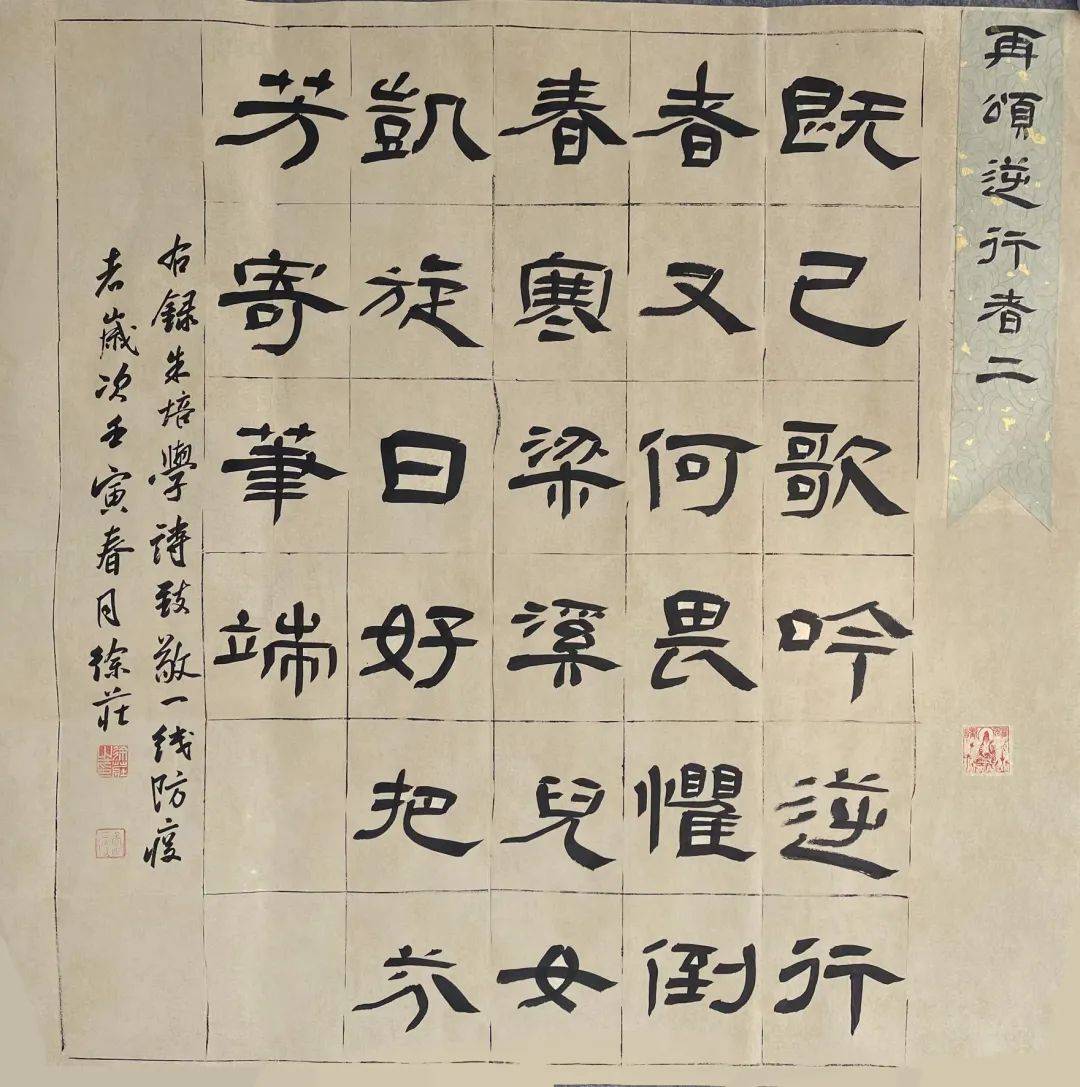 再頌逆行者二
既已歌吟逆行
者又何畏懼倒
春寒梁溪兒女
凱旋日好把芬
芳寄筆端
右録朱培學詩致敬一线防疫
者歲次壬寅春月徐莊